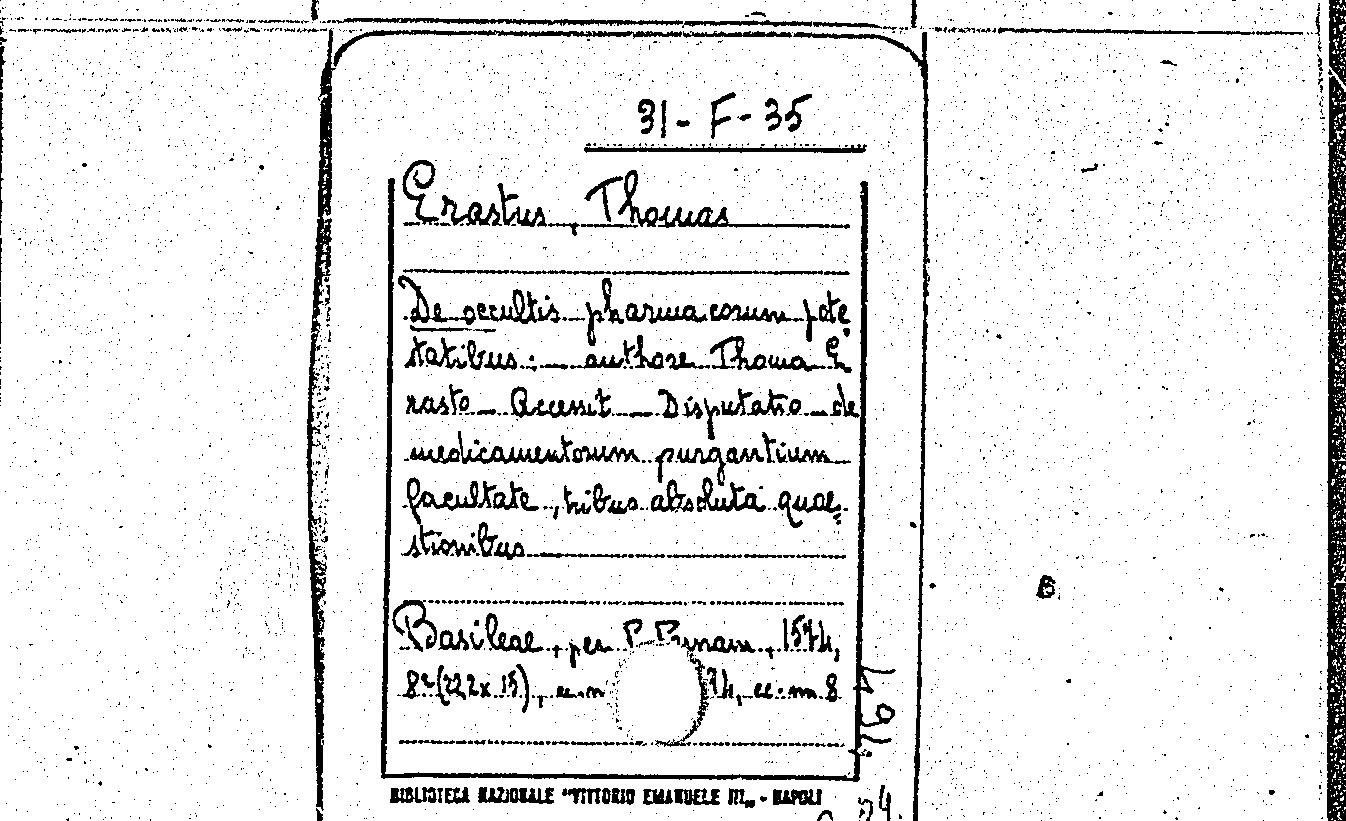 31 - F - 35
Erastus, Thomas
De occultis pharmacorum pote
statibus: — authore Thoma E
rasto — Accessit — Disputatio — de
medicamentorum purgantium
facultate, tribus absoluta quae=
stionibus
Basileae, per P. Pernam, 1574,
8° (222 x 15), cc. n 74, cc. nn 8
BIBLIOTECA NAZIONALE "VITTORIO EMANUELE III„ - NAPOLI